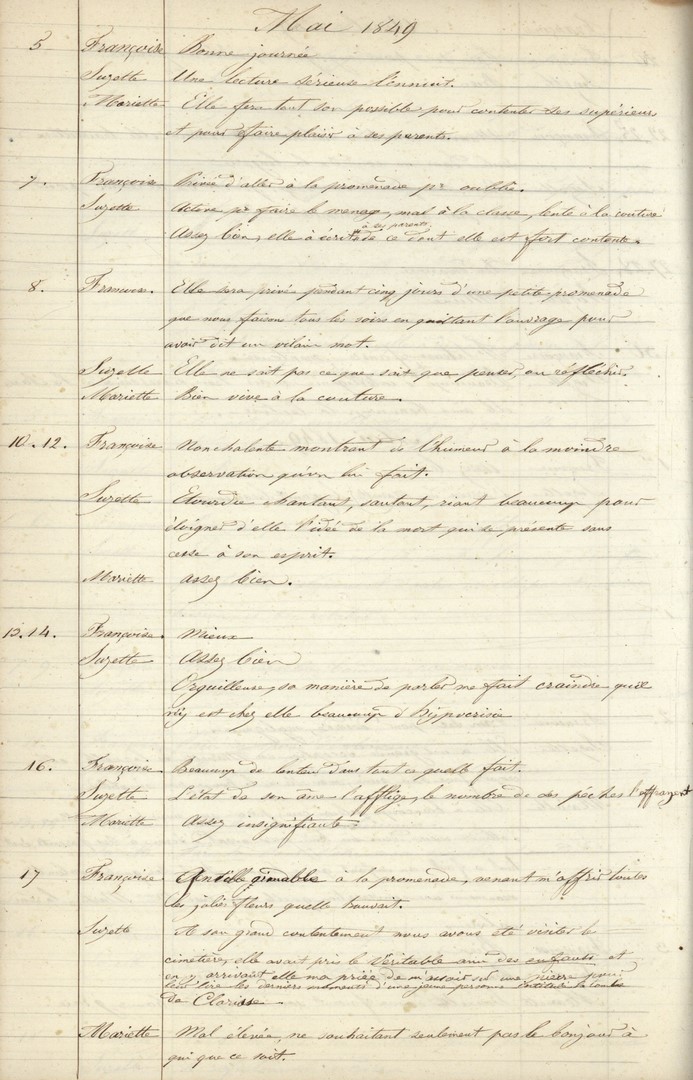 Mai 1849
5 Françoise Bonne journée
Suzette Une lecture sérieuse l'ennuit.
Mariette Elle fera tout son possible pour contenter ses supérieurs
et pour faire plaisir à ses parents.
7. Françoise Privée d'aller à la promenade pr oublie.
Suzette Active pr faire le menage, mal à la classe, lente à la couture
à ses parents
Assez bien, elle à écrit de ce dont elle est fort contente.
8. Francoise. Elle sera privé pendant cinq jours d'une petite promenade
que nous faisons tous les soirs en quittant l'ouvrage pour
avoir dit un vilain mot.
Suzette Elle ne sait pas ce que sait que penser, ou réfléchir.
Mariette Bien vive à la couture.
10. 12. Françoise Nonchalente montrant de l'humeur à la moindre
observation qu'on lui fait.
Suzette Etourdie chantant, sautant, riant beaucoup pour
éloigner d'elle l'idée de la mort qui se présente sans
cesse à son esprit.
Mariette Assez bien.
13. 14. Françoise. Mieux
Suzette Assez bien
Orguilleuse, sa manière de parler me fait craindre qu'il
n'y est chez elle beaucoup d'hypocrisie
16. Françoise. Beaucoup de lenteur dans tout ce quelle fait.
Suzette L'état de son âme l'afflige, le nombre de ces péchés l'effrayent
Mariette Assez insignifiante.
17 Françoise. Gentille aimable à la promenade, venant m'offrir toutes
les jolies fleurs quelle trouvait.
Suzette A son grand contentement nous avons été visiter le
cimetière, elle avait pris le Véritable ami des enfants et
en y arrivant elle ma priée de m'assoir sur une pierre pour
leur lire les derniers moments d'une jeune personne intitulé la tombe
de Clarisse.
Mariette Mal élevée, ne souhaitant seulement pas le bonjour à
qui que ce soit.